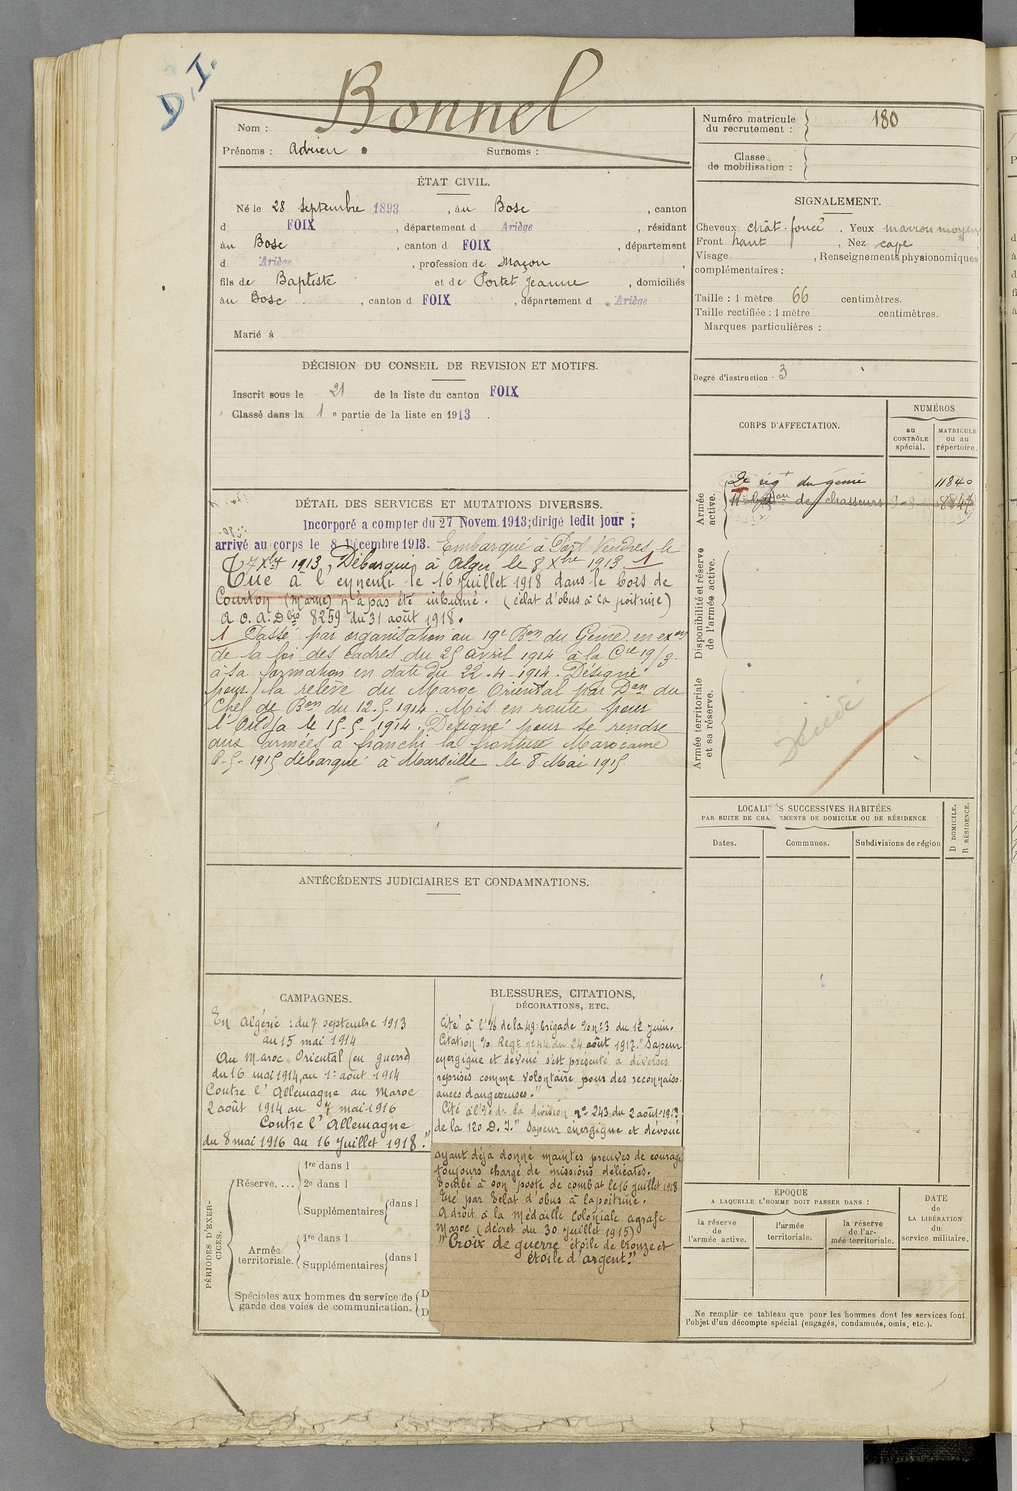 D.I.
Bonnel
Nom :
Prénoms : Adrien Surnoms :
Numéro matricule
du recrutement : 180
Classe
de mobilisation :
ÉTAT CIVIL.
Né le 28 septembre 1893, au Bosc, canton
d FOIX, département d Ariège, résidant
au Bosc, canton d FOIX, département
d Ariège, profession de Maçon,
fils de Baptiste et de Portet Jeanne, domiciliés
au Bosc, canton d FOIX, département d Ariège
Marié à
SIGNALEMENT.
Cheveux chât. foncé. Yeux marron moyen
Front haut, Nez cave
Visage, Renseignements physionomiques
complémentaires :
Taille : 1 mètre 66 centimètres.
Taille rectifiée : 1 mètre centimètres.
Marques particulières :
Degré d'instruction . 3
DÉCISION DU CONSEIL DE REVISION ET MOTIFS.
Inscrit sous le 21 de la liste du canton FOIX
Classé dans la 1e partie de la liste en 1913.
CORPS D'AFFECTATION.
NUMÉROS
au
CONTRÔLE
spécial.
MATRICULE
ou au
répertoire.
Armée
active.
2e rég.t du génie 11840
bat.on de chasseurs
Disponibilité et réserve
de l'armée active.
Armée territoriale
et sa réserve.
Décédé
DÉTAIL DES SERVICES ET MUTATIONS DIVERSES.
Incorporé a compter du 27 Novem. 1913; dirigé ledit jour ;
arrivé au corps le 8 Décembre 1913. Embarqué à Port Vendres le
7 Xbre 1913, Débarqué à Alger le 8 Xbre 1913 1
Tué à l'ennemi le 16 juillet 1918 dans le bois de
Courton (Marne) n'a pas été inhumé. (éclat d'obus à la poitrine)
8259 du 31 août 1918.
1 Passé par organisation au 19e Bon du Génie en exon
de la loi des cadres du 25 avril 1914 à la Cie 19/3
à sa formation en date du 22-4-1914. Désigné
pour la relève du Maroc Oriental par Don du
Chef de Bon du 12.5.1914. Mis en route pour
l'Oudja le 15-5-1914. Désigné pour se rendre
aux armées a franchi la frontière Marocaine
5-1915 débarqué à Marseille le 8 Mai 1915
LOCALITÉS SUCCESSIVES HABITÉES
PAR SUITE DE CHANGEMENTS DE DOMICILE OU DE RÉSIDENCE
Dates. Communes. Subdivisions de région
D DOMICILE.
R RÉSIDENCE.
ANTÉCÉDENTS JUDICIAIRES ET CONDAMNATIONS.
CAMPAGNES.
En Algérie : du 7 septembre 1913
au 15 mai 1914
Au Maroc Oriental (en guerre)
du 16 mai 1914, au 1er août 1914
Contre l'Allemagne au Maroc
2 août 1914 au 7 mai 1916
Contre l'Allemagne
du 8 mai 1916 au 16 Juillet 1918."
BLESSURES, CITATIONS,
DÉCORATIONS, ETC.
Cité à l'% de la brigade % no: 3 du 12 juin.
Citation % Regt no 44 du 24 août 1917. "Sapeur
energique et dévoué s'est présenté à diverses
reprises comme volontaire pour des reconnais-
ances dangereuses."
Cité à l'% de la division no 243 du 2 août
de la 120 D.I. "Sapeur énergique et dévoué
ayant déjà donné maintes preuves de courage
toujours chargé de missions délicates.
Tombé à son poste de combat le 16 juillet 1918
Tué par éclat d'obus à la poitrine.
A droit à la Médaille Coloniale agrafe
Maroc (décret du 30 juillet 1915)
"Croix de guerre étoile de bronze et
étoile d'argent."
PÉRIODES D'EXER-
CICES.
Réserve....
1re dans l
2e dans l
Supplémentaires dans l
Armée
territoriale.
1re dans l
Supplémentaires dans l
Spéciales aux hommes du service de
garde des voies de communication.
D
D
ÉPOQUE
A LAQUELLE L'HOMME DOIT PASSER DANS :
la réserve
de
l'armée active.
l'armée
territoriale.
la réserve
de l'ar-
mée territoriale.
DATE
de
LA LIBÉRATION
du
service militaire.
Ne remplir ce tableau que pour les hommes dont les services font
l'objet d'un décompte spécial (engagés, condamnés, omis, etc.).